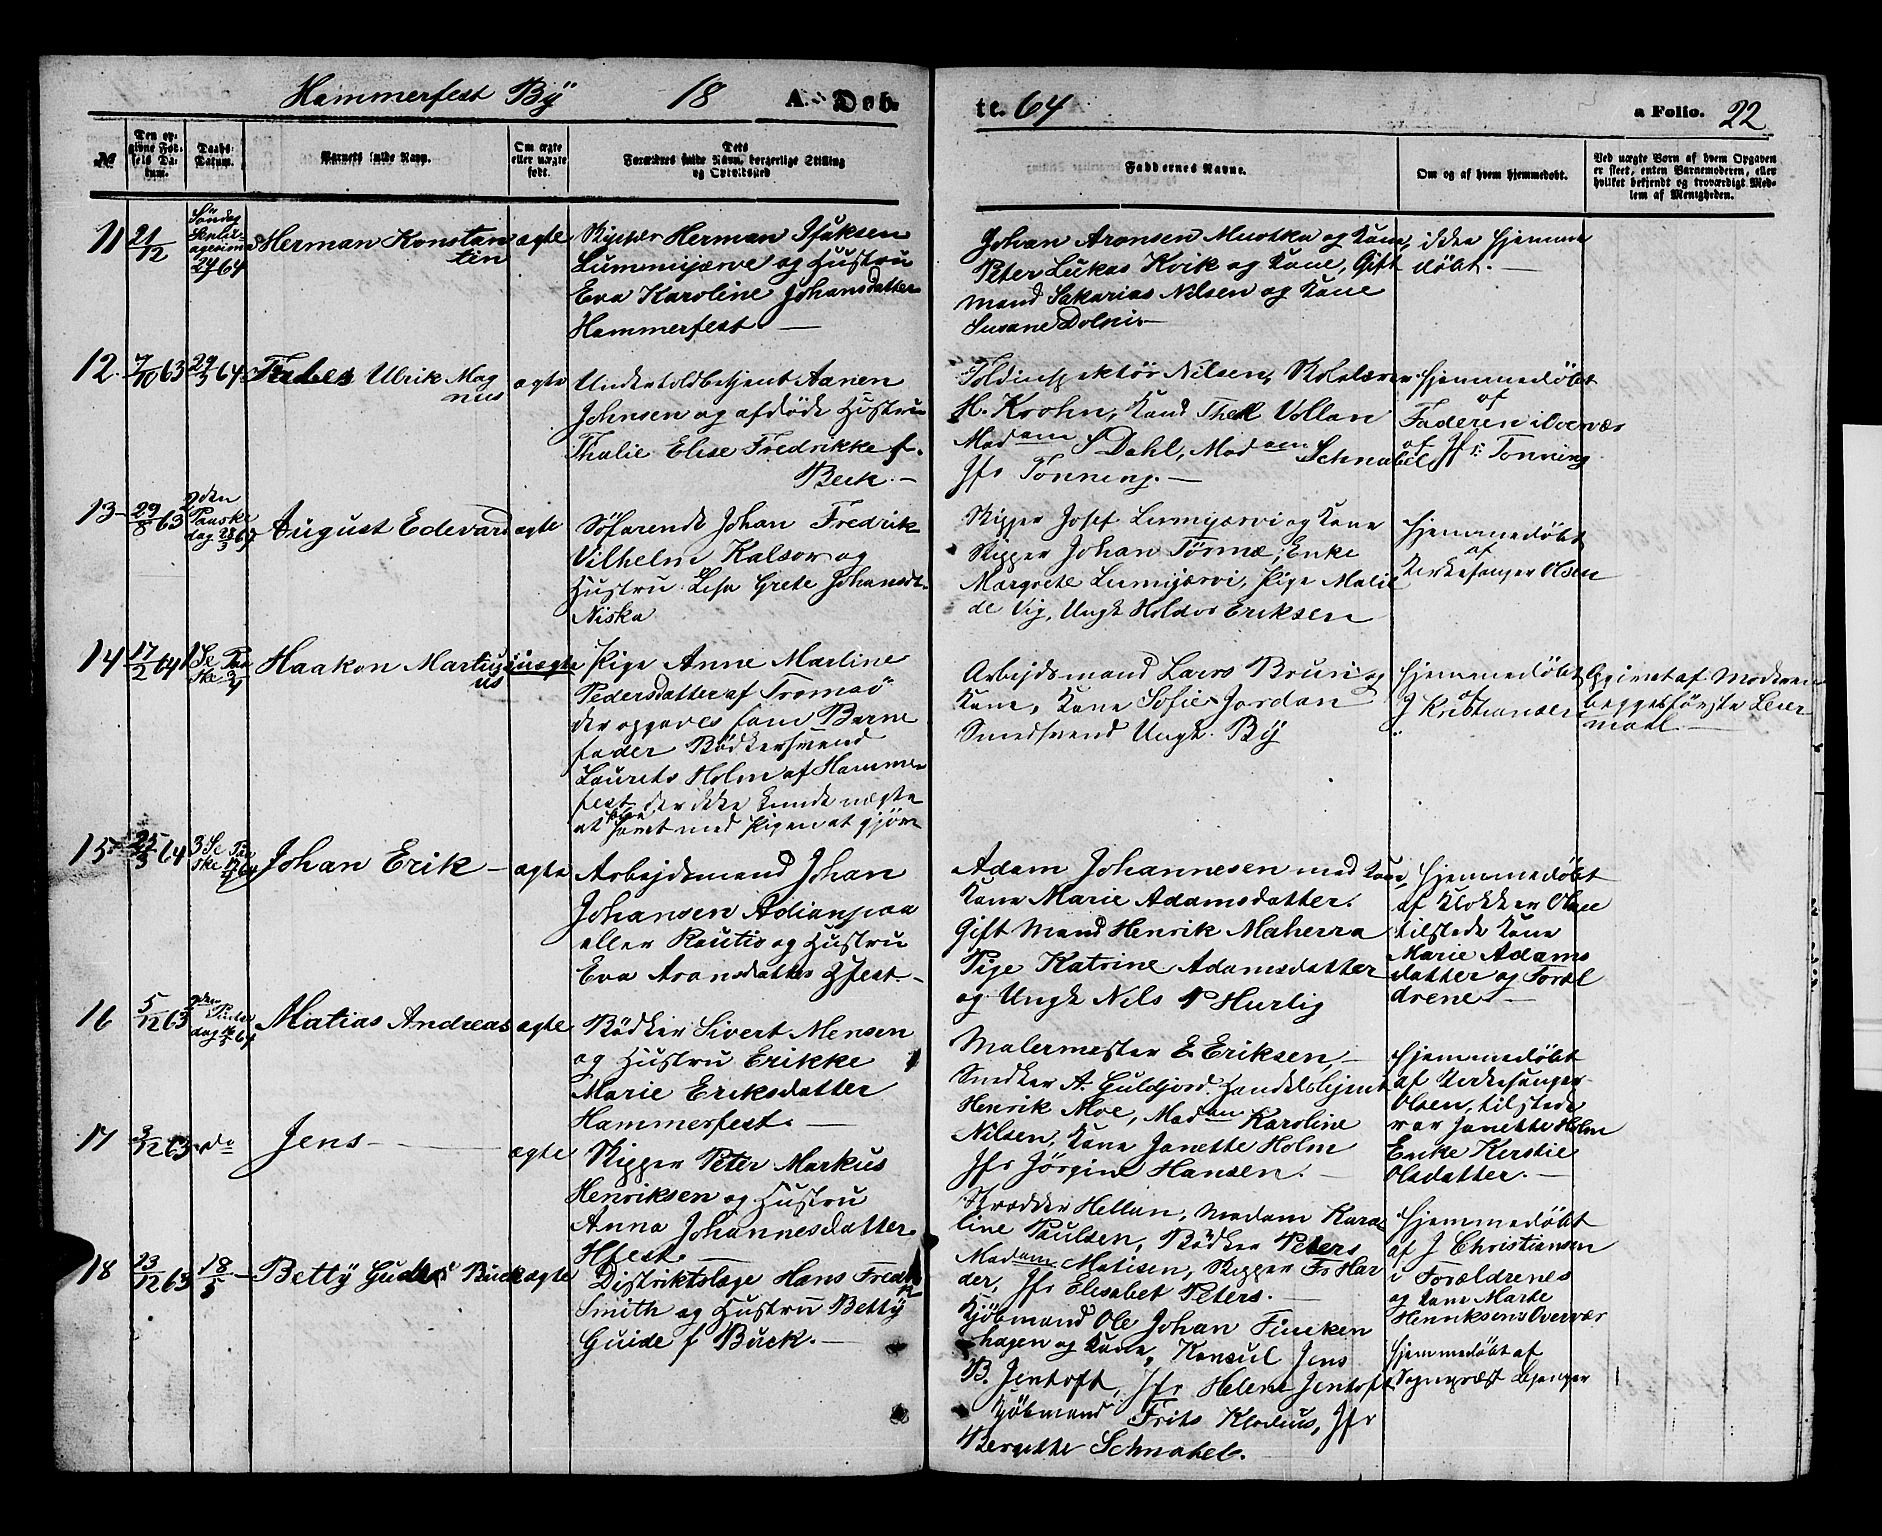 Hammerfest By 18 A. Døb-
te. 64
a Folio. 22
№
Den opgivne Fødsels Datum.
Daabs-Datum.
Barnets fulde Navn.
Om ægte eller uægte født.
Dets Forældres fulde Navn, borgerlige Stilling og Opholdssted
Faddernes Navne.
Om og af hvem hjemmedøbt.
Ved uægte Børn af hvem Opgaven er skeet, enten Barnemoderen, eller hvilket bekjendt og troværdigt Medlem af Menigheden.
11 21/12
Søndag
24/1 64
Herman Konstan
tin
ægte
Skipper Herman Isaksen
Lummijærve og Hustru
Eva Karoline Johansdatter
Hammerfest —
Johan Aronsen Muotka og Kone,
Peter Lukas Kvik og Kone, Gift
mand Sakarias Nilsen og Kone
Susane
ikke hjemme
døbt. —
12. 7/10 63
Ulrik Mag
nus
ægte
Undertoldbetjent Aanen
Johnsen og afdøde Hustru
Thalie Elise Fredrikke f.
Beck. —
Toldinspektør Nilsen, Skolelærer
H. Krohn, Kand Theol Vollan
Madam S Dahl, Madam Schnabel
Jfr Tønning. —
Hjemmedøbt
af
Faderen i Overvær
af Jfr: Tønning
13- 29/8 63
2den
Paaske
dag 28/3 64
August Edevard
ægte
Søfarende Johan Fredrik
Vilhelm Kalsow og
Hustru Lisa Grete Johansdt.
Niska
Skipper Josef Lumijærvi og Kone
Skipper Johan Törmæ, Enke
Margrete Lumijærvi, Pige Matil
de Vig, Ungk Holdor Eriksen
Hjemmedøbt
af
Kirkesanger Olsen
14 17/2 64
1 Se Paa
ske 3/4
Haakon Martin
us
uægte
Pige Anne Martine
Pedersdatter af Tromsø
der opgaves som Barne
fader Bødkersvend
Laurets Holm af Hammer
fest der ikke kunde nægte
at have havt med Pigen at gjøre
Arbejdsmand Lars Bruun og
Kone, Kone Sofie Jordan
Smedsvend Ungk. By
Hjemmedøbt
af
J Kristiansen
Opgivet af Moderen
begges første Leier
maal —
15 25/3 64
3 Se Paa
ske 17/4 64
Johan Erik —
ægte
Arbejdsmand Johan
Johansen Adianpaa
eller Rautio og Hustru
Eva Aronsdatter Hfest. —
Adam Johannesen med Kone,
Kone Marie Adamsdatter.
Gift Mand Henrik Maherra
Pige Katrine Adamsdatter
og Ungk Nils P Hurtig
Hjemmedøbt
af Klokker Olsen
tilstede Kone
Marie Adams
datter og Foræl
drene —
16 5/12 63
2den Pintse
dag 16/5 64
Matias Andreas
ægte
Bødker Sivert Mensen
og Hustru Erikke
Marie Eriksdatter
Hammerfest. —
Malermester E Eriksen, —
Snedker A. Guldjord. Handelsbetjent
Henrik Moe, Madam Karoline
Nilsen, Kone Janette Holm
Jfr Jørgine Hansen. —
Hjemmedøbt
af Kirkesanger
Olsen, tilstede
var Janette Holm
Enke Kerstie
Olsdatter. —
17 3/12 63
do
Jens —
ægte
Skipper Peter Markus
Henriksen og Hustru
Anna Johannesdatter
Hfest. —
Skrædder Hellan, Madam Karo
line Paulsen, Bødker Peters
Madam Matisen, Skipper Fr Har
der, Jfr Elisabet Peters. —
Hjemmedøbt
af J Christiansen
i Forældrenes
og Kone Marte
Henriksens Overvær
18 23/12 63
18/5 —
Betty Buck
ægte
Distriktslæge Hans Fredrik
Smith og Hustru Betty
Guide f Buck. —
Kjøbmand Ole Johan Fincken
hagen og Kone, Konsul Jens
B. Jentoft, Jfr Helene Jentoft
Kjøbmand Frits Klodius, Jfr
Bergitte Schnabel.
Hjemmedøbt af
Sognepræst